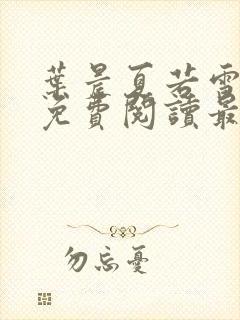 葉晨夏若雪
免費閱讀最
勿忘憂